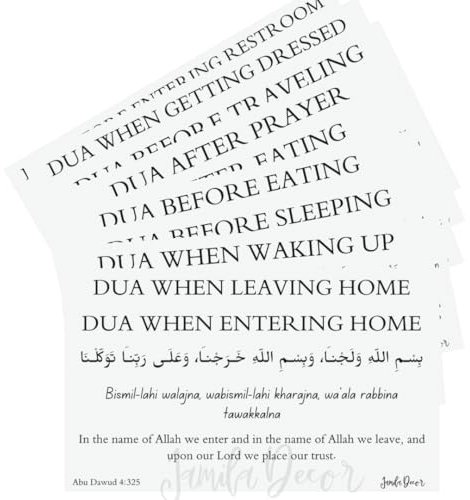 ENTERING RESTROOM
DUA WHEN GETTING DRESSED
DUA BEFORE TRAVELING
DUA AFTER PRAYER
AFTER EATING
DUA BEFORE EATING
DUA BEFORE SLEEPING
DUA WHEN WAKING UP
DUA WHEN LEAVING HOME
DUA WHEN ENTERING HOME
بِسْمِ اللَّهِ وَلَجْنَا، وَبِسْمِ اللَّهِ خَرَجْنَا، وَعَلَى رَبِّنَا تَوَكَّلْنَا
Bismil-lahi walajna, wabismil-lahi kharajna, wa'ala rabbina
tawakkalna
In the name of Allah we enter and in the name of Allah we leave, and
upon our Lord we place our trust.
Jamila Decor
Abu Dawud 4:325
Jamila Decor